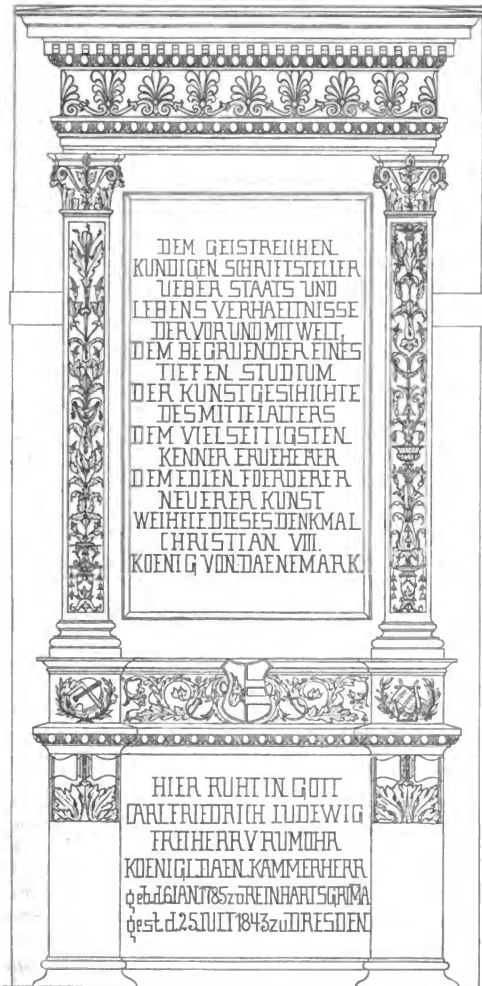 DEM GEISTREICHEN
KUNDIGEN SCHRIFTSTELLER
UEBER STAATS UND
LEBENS VERHAELTNISSE
DER VOR UND MIT WELT,
DEM BEGRUENDER EINES
TIEFEN STUDIUM
DER KUNSTGESCHICHTE
DES MITTELALTERS
DEM VIELSEITIGSTEN
KENNER FRUEHERER
DEM EDLEN FOERDERER
NEUERER KUNST
WEIHETE DIESES DENKMAL
CHRISTIAN VIII.
KOENIG VON DAENEMARK.
HIER RUHT IN GOTT
CARL FRIEDRICH LUDEWIG
FREIHERR V RUMOHR
KOENIGL. DAEN. KAMMERHERR
geb. d. 6 JAN. 1785 zu REINHARTSGRIMA
gest. d. 25 JULI 1843 zu DRESDEN